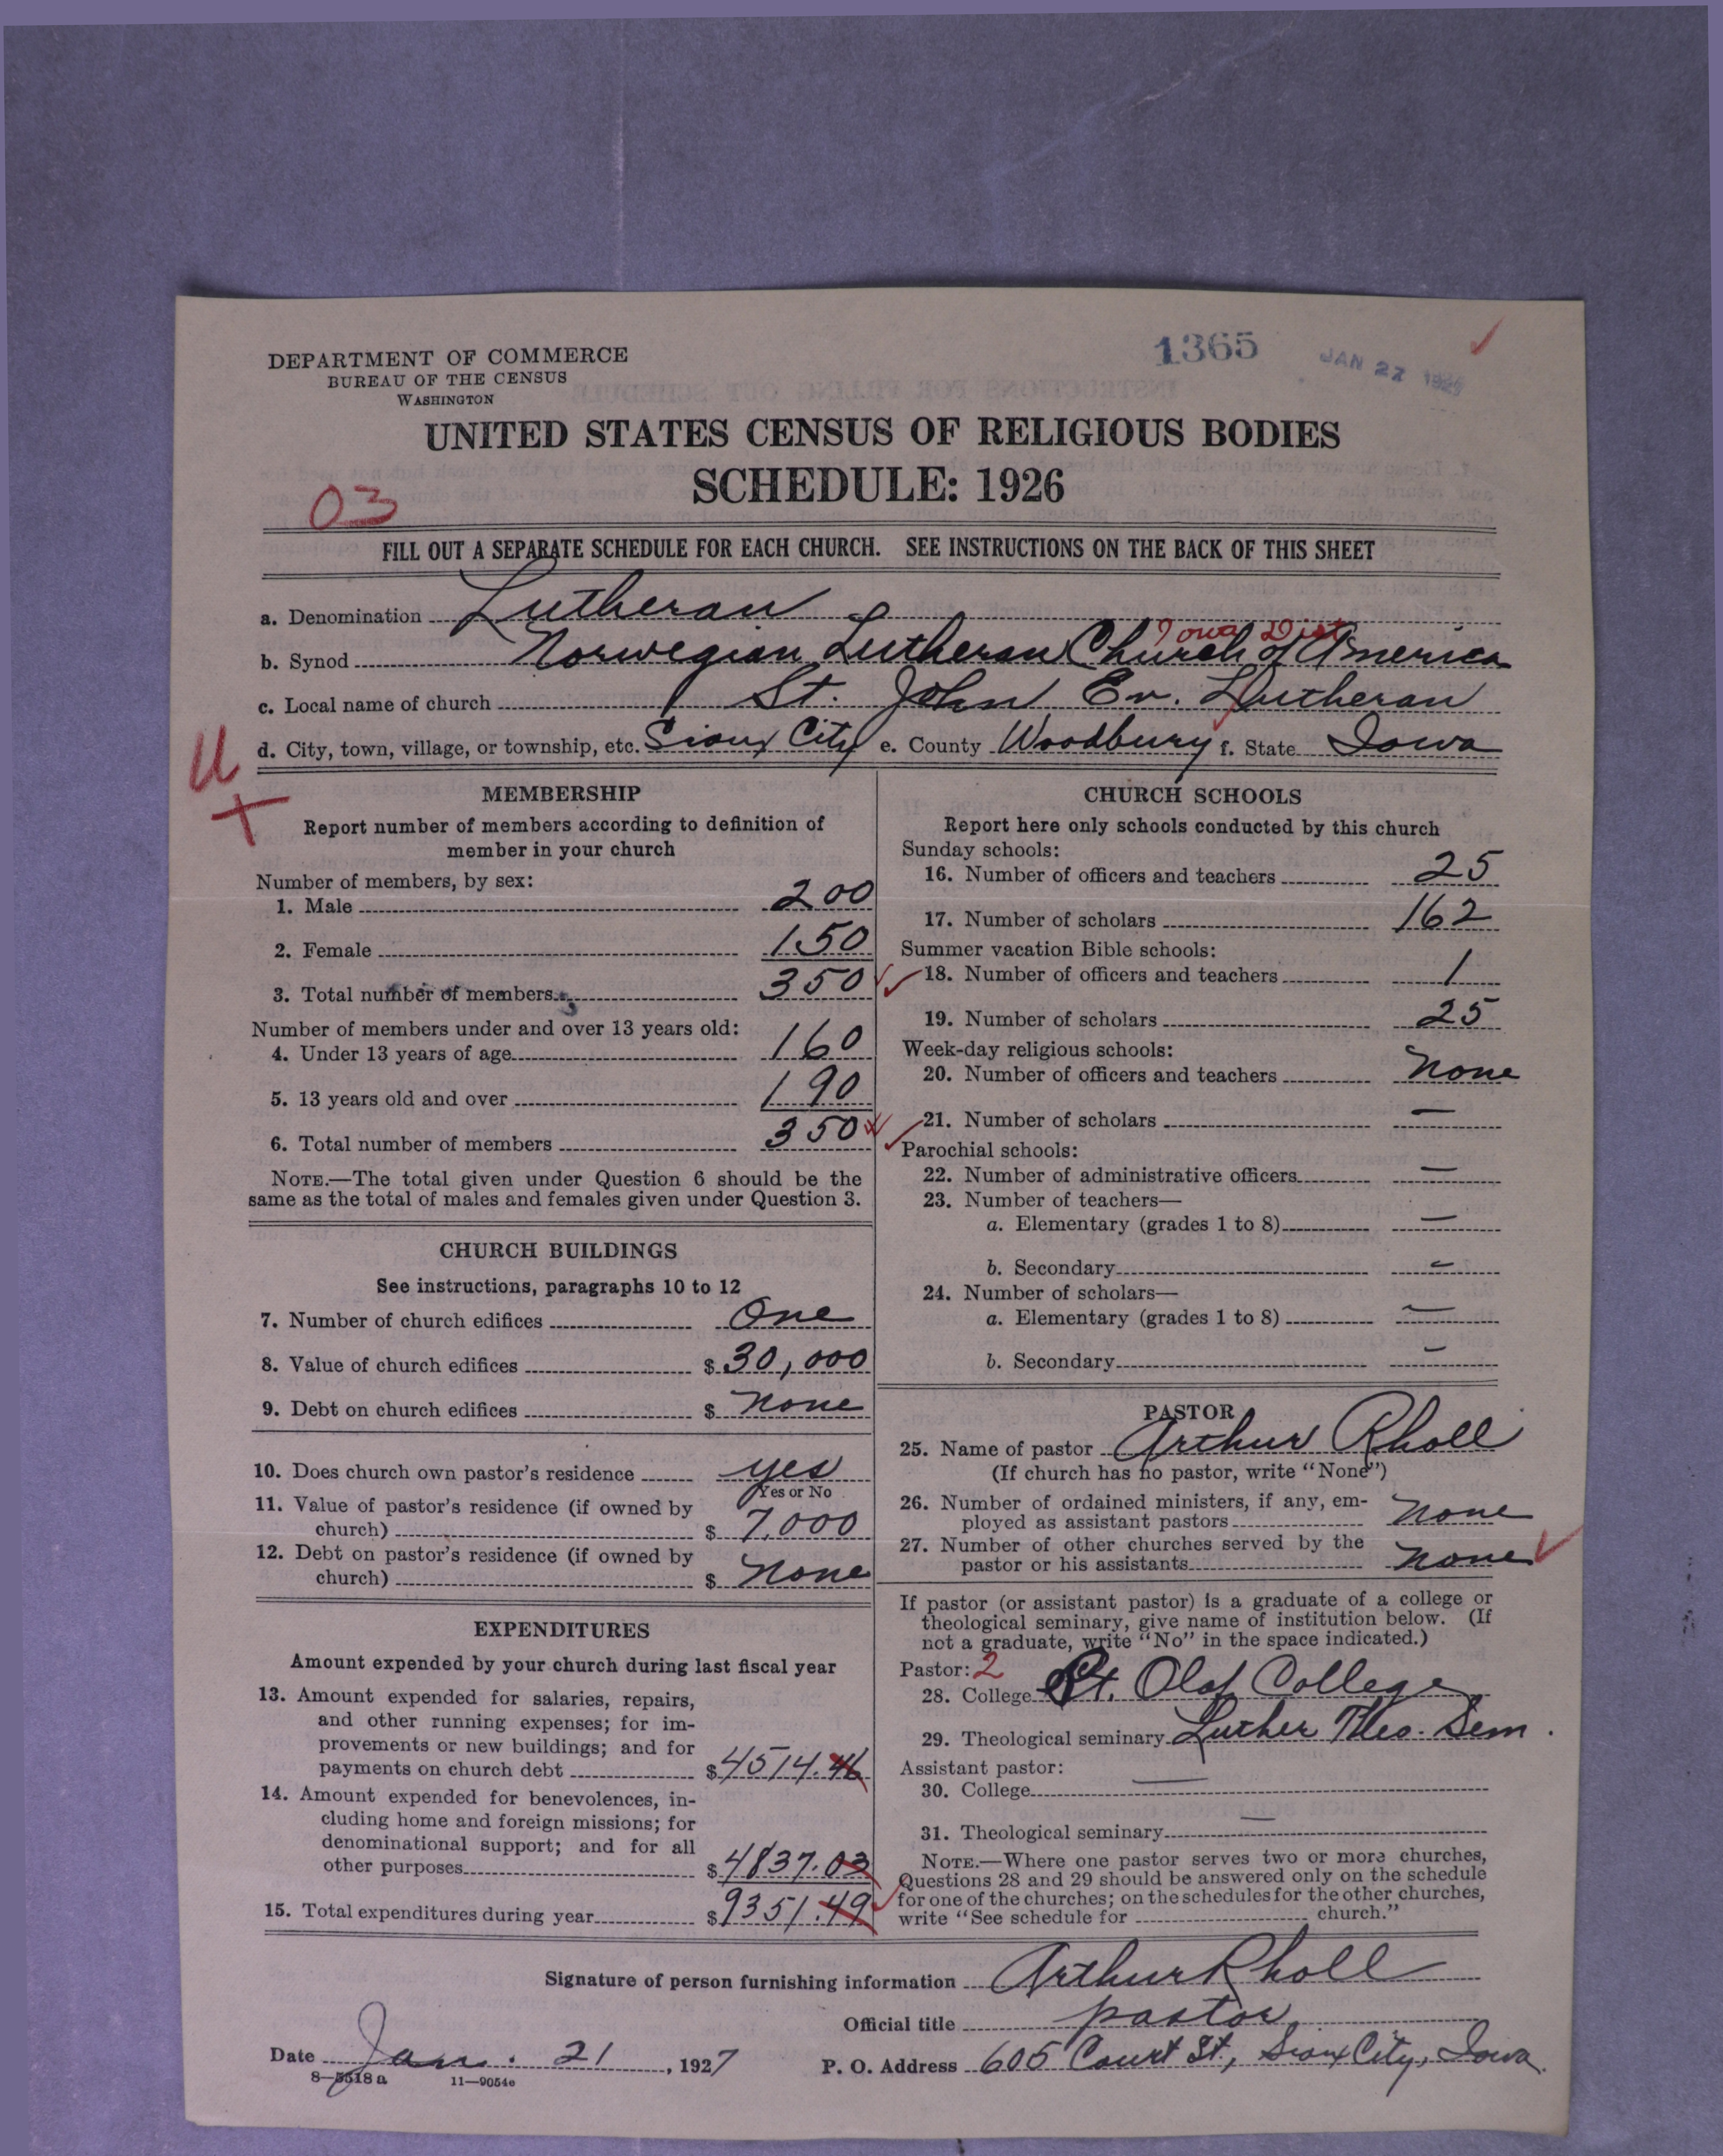 1365
JAN 27
DEPARTMENT OF COMMERCE
BUREAU OF THE CENSUS
WASHINGTON
UNITED STATES CENSUS OF RELIGIOUS BODIES
SCHEDULE: 1926
03
FILL OUT A SEPARATE SCHEDULE FOR EACH CHURCH. SEE INSTRUCTIONS ON THE BACK OF THIS SHEET
a. Denomination Lutheran
Iowa Dist
b. Synod Norwegian Lutheran Church of America
c. Local name of church St. John Ev. Lutheran
d. City, town, village, or township, etc. Sioux City e. County Woodbury f. State Iowa
U
MEMBERSHIP
Report number of members according to definition of
member in your church
Number of members, by sex:
1. Male 200
2. Female 150
3. Total number of members 350
Number of members under and over 13 years old:
4. Under 13 years of age 160
5. 13 years old and over 190
6. Total number of members 350
NOTE.—The total given under Question 6 should be the
same as the total of males and females given under Question 3.
CHURCH BUILDINGS
See instructions, paragraphs 10 to 12
7. Number of church edifices One
8. Value of church edifices $ 30,000
9. Debt on church edifices $ None
10. Does church own pastor's residence yes
Yes or No
11. Value of pastor's residence (if owned by
church) $ 7,000
12. Debt on pastor's residence (if owned by
church) $ None
EXPENDITURES
Amount expended by your church during last fiscal year
13. Amount expended for salaries, repairs,
and other running expenses; for im-
provements or new buildings; and for
payments on church debt $ 4514.46
14. Amount expended for benevolences, in-
cluding home and foreign missions; for
denominational support; and for all
other purposes $ 4837.03
15. Total expenditures during year $ 9351.49
CHURCH SCHOOLS
Report here only schools conducted by this church
Sunday schools:
16. Number of officers and teachers 25
17. Number of scholars 162
Summer vacation Bible schools:
18. Number of officers and teachers 1
19. Number of scholars 25
Week-day religious schools:
20. Number of officers and teachers None
21. Number of scholars —
Parochial schools:
22. Number of administrative officers —
23. Number of teachers—
a. Elementary (grades 1 to 8) —
b. Secondary —
24. Number of scholars—
a. Elementary (grades 1 to 8) —
b. Secondary —
PASTOR
25. Name of pastor Arthur Rholl
(If church has no pastor, write "None")
26. Number of ordained ministers, if any, em-
ployed as assistant pastors None
27. Number of other churches served by the
pastor or his assistants None
If pastor (or assistant pastor) is a graduate of a college or
theological seminary, give name of institution below. (If
not a graduate, write "No" in the space indicated.)
Pastor: 2
28. College St. Olaf College
29. Theological seminary Luther Theo. Sem.
Assistant pastor:
30. College —
31. Theological seminary —
NOTE.—Where one pastor serves two or more churches,
Questions 28 and 29 should be answered only on the schedule
for one of the churches; on the schedules for the other churches,
write "See schedule for church."
Signature of person furnishing information Arthur Rholl
Official title pastor
Date Jan. 21, 1927 P. O. Address 605 Court St., Sioux City, Iowa.
8—5518 a 11—9054c